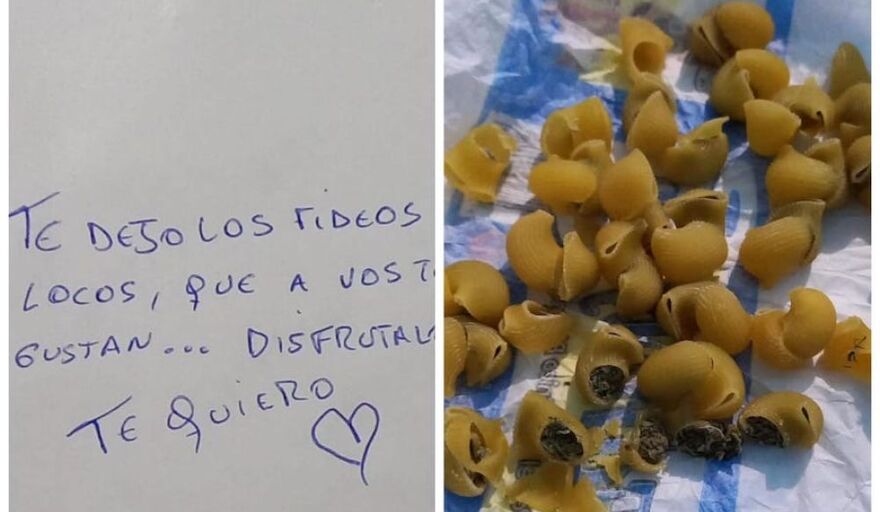 TE DEJO LOS FIDEOS
LOCOS, QUE A VOS T
GUSTAN... DISFRUTAL
TE QUIERO